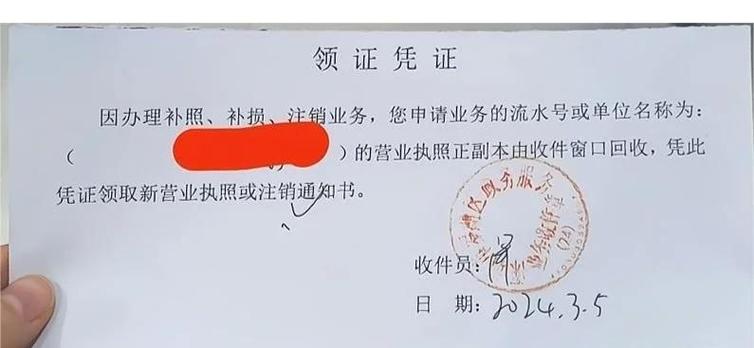 领证凭证
因办理补照、补损、注销业务，您申请业务的流水号或单位名称为：
（）的营业执照正副本由收件窗口回收，凭此
凭证领取新营业执照或注销通知书。
收件员：
日 期：2024.3.5
区政务服务
业务收件章
(24)